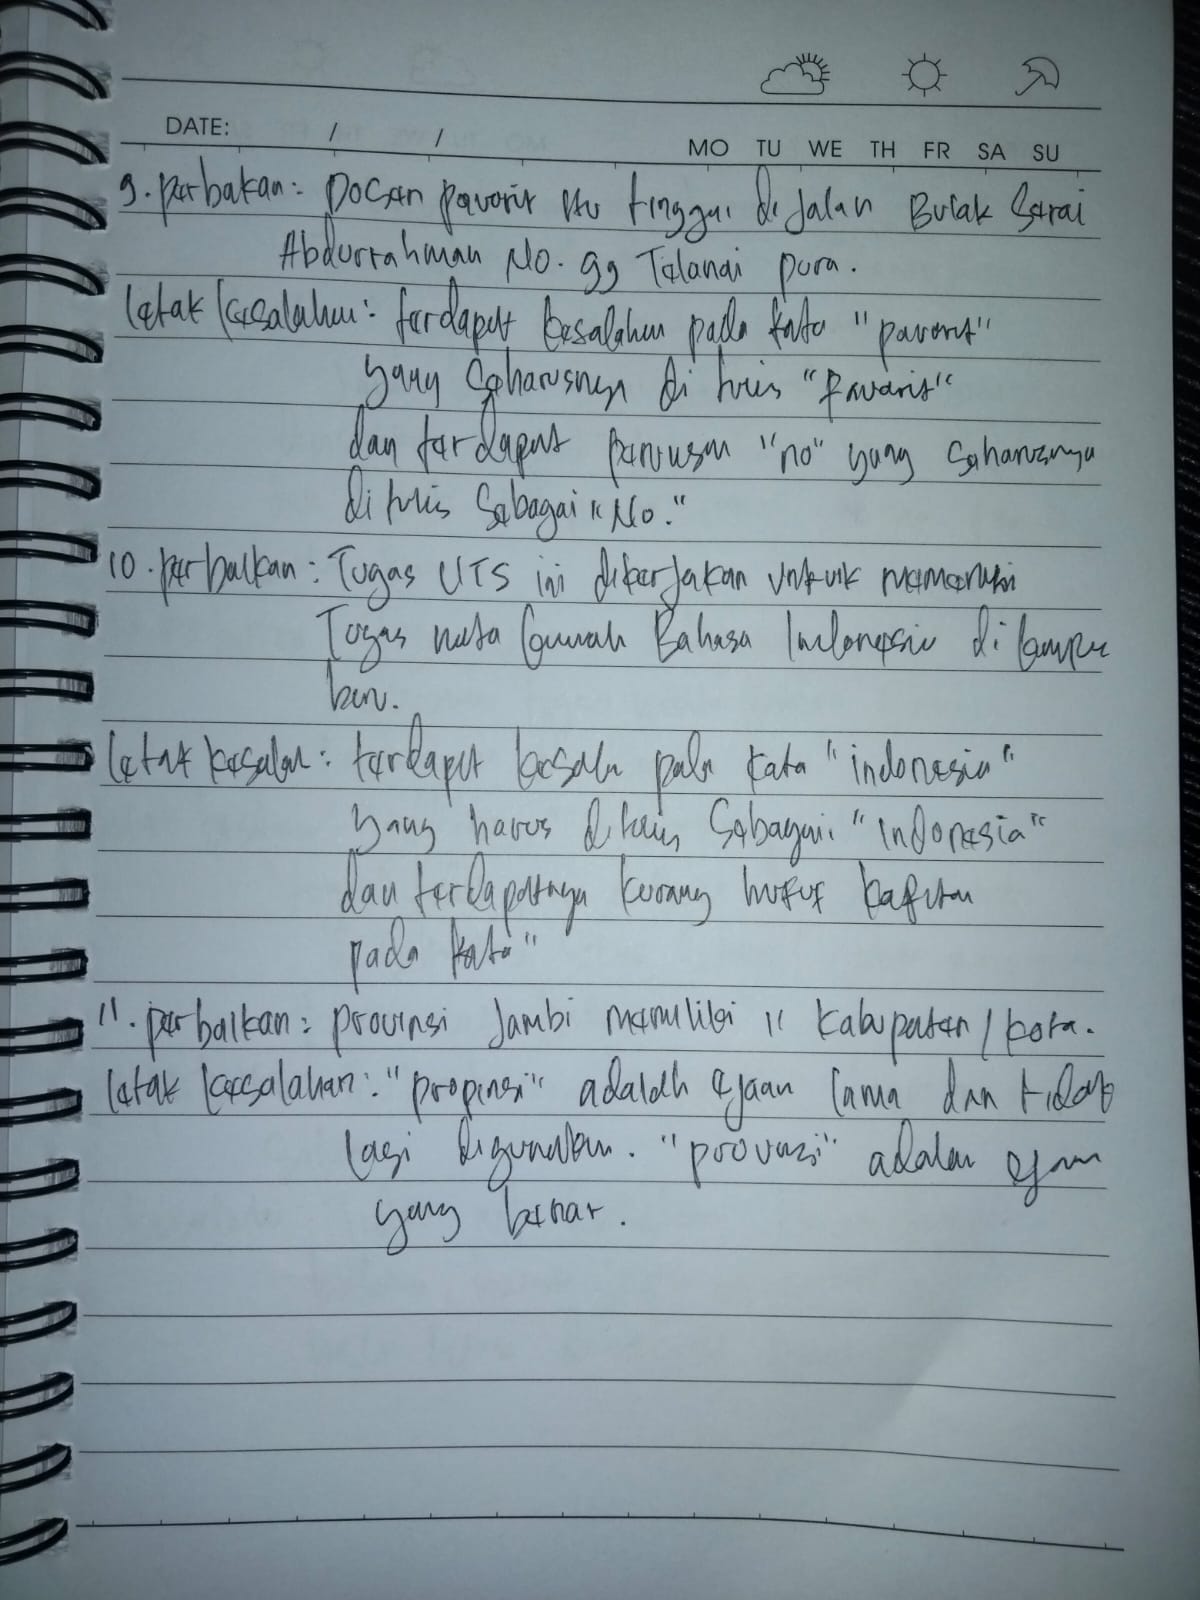 DATE: / /
MO TU WE TH FR SA SU
9. perbakan: Docen pavorit itu tinggai di jalan Bulak Serai
Abdurrahman No. 99 Telanai pura.
letak kesalahan: terdapat kesalahan pada kata "pavorit"
yang seharusnya di tulis "favorit"
dan terdapat "no" yang seharusnya
di tulis sebagai "No."
10. perbaikan: Tugas UTS ini dikerjakan untuk memenuhi
Tugas mata kuliah Bahasa Indonesia di
letak kesalah: terdapat kesalah pada kata "indonesia"
yang harus ditulis sebagai "Indonesia"
dan terdapatnya kurang huruf kapital
pada kata"
11. perbaikan: provinsi Jambi memiliki 11 kabupaten/kota.
letak kesalahan: "propinsi" adalah ejaan lama dan tidak
lagi digunakan. "provinsi" adalah ejaan
yang benar.